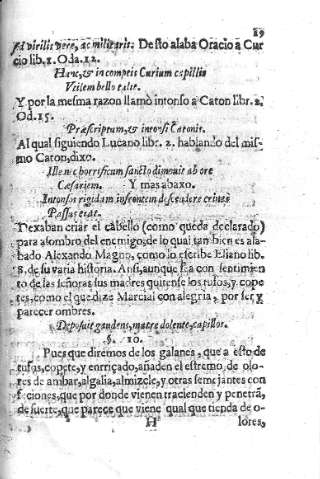 29
& virilis vere, ac militaris: Desto alaba Oracio à Cur
cio lib. 1. Oda. 12.
Hunc, & incomptis Curium capillis
Vtilem bello tulit.
Y por la mesma razon llamò intonso a Caton libr. 2.
Od. 15.
Præscriptum, & intonsi Catonis.
Al qual siguiendo Lucano libr. 2. hablando del mis
mo Caton, dixo.
Ille nec horrificam sancto dimouit ab ore
Cæsariem. Y mas abaxo.
Intonsos rigidam in frontem descendere crines
Passus erat.
Dexaban criar el cabello (como queda declarado)
para asombro del enemigo, de lo qual tan bien es ala-
bado Alexandro Magno, como lo escribe Eliano lib.
8. de su varia historia. Ansi, aunque sea con sentimien
to de las señoras sus madres quitense los tufos, y cope
tes, como el que dize Marcial con alegria, por ser, y
parecer ombres.
Deposuit gaudens, matre dolente, capillos.
§. 10.
Pues que diremos de los galanes, que a esto de
tufos, copete, y enrriçado, añaden el estremo de olo-
res de ambar, algalia, almizcle, y otras semejantes con
feciones, que por donde vienen tracienden y penetrã,
de suerte, que parece que viene qual que tienda de o-
H lores,